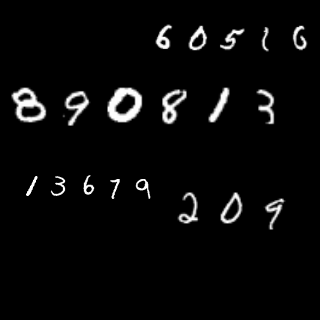 60516
890813
13679
209